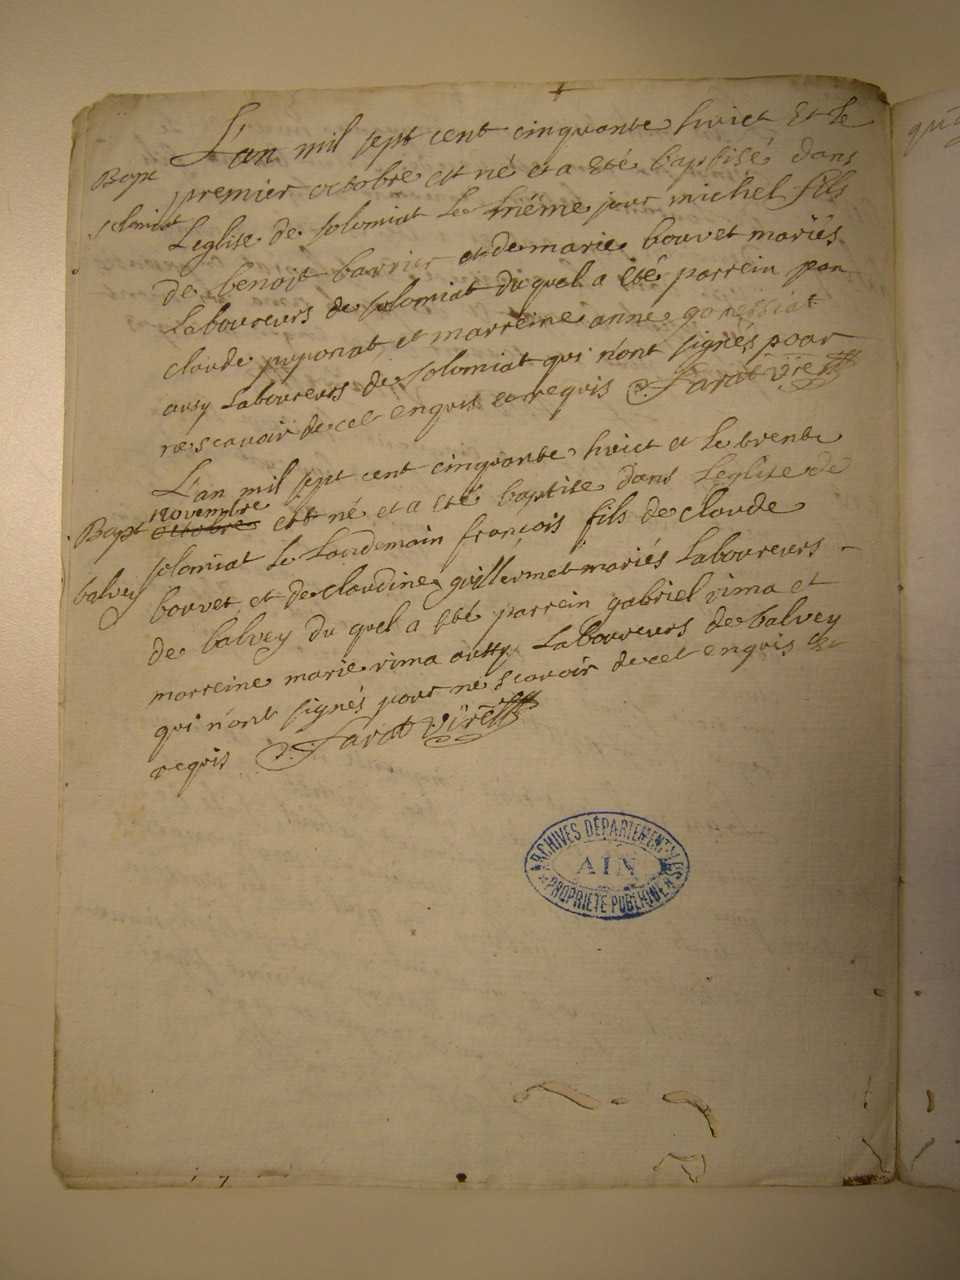 L'an mil sept cent cinquante huict Et le
Bapt
premier octobre est né et a Eté baptisé dans
solomiat
Leglise de solomiat le méme jour michel fils
de benoit barrier et de marie bouvet mariés
Laboureurs de solomiat du quel a été parrein
claude puponat et marreine anne
ausy Laboureurs de solomiat qui n'ont signés pour
ne scavoir de cet enquis et requis
L'an mil sept cent cinquante huict et le trente
novembre
Bapt
octobre est né et a eté baptise dans Leglise de
balvey
solomiat le Landemain françois fils de claude
bouvet et de claudine guillermet mariés Laboureurs
de balvey du quel a eté parrein gabriel vima et
marreine marie vima aussy Laboureurs de balvey
qui n'ont signés pour ne scavoir de cet enquis et
requis
ARCHIVES DÉPARTEMENTALES
AIN
PROPRIÉTÉ PUBLIQUE